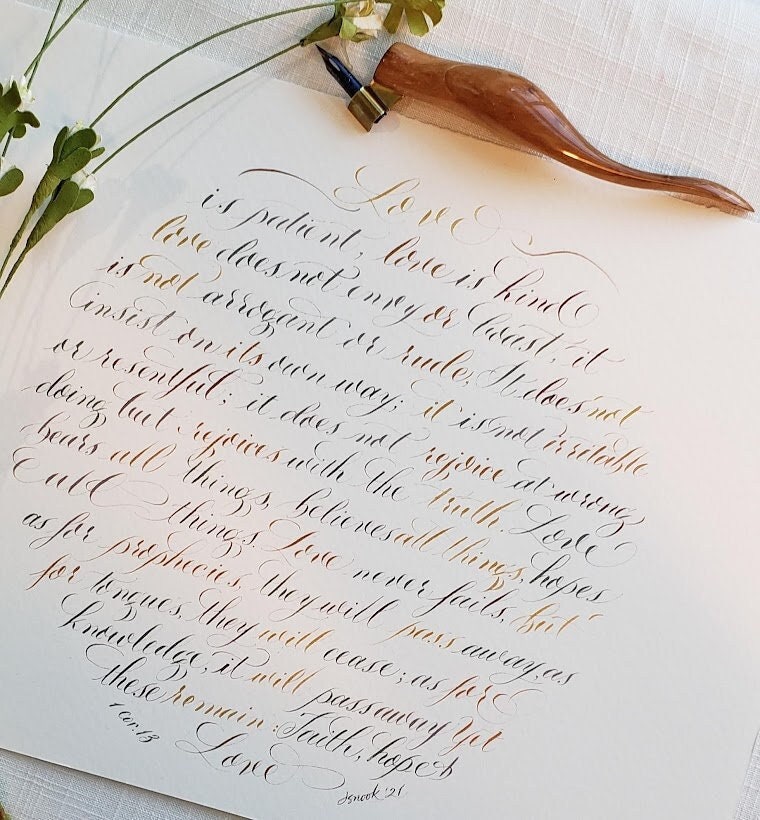 Love
is patient, love is kind
love does not envy or boast; it
is not arrogant or rude; It does not
insist on its own way; it is not irritable
or resentful; it does not rejoice at wrong
doing but rejoices with the truth. Love
bears all things, believes all things, hopes
all things. Love never fails, but
as for prophecies, they will pass away, as
for tongues, they will cease; as for
knowledge, it will pass away Yet
these remain: Faith, hope &
1 Cor. 13
Love
Jsnook '21